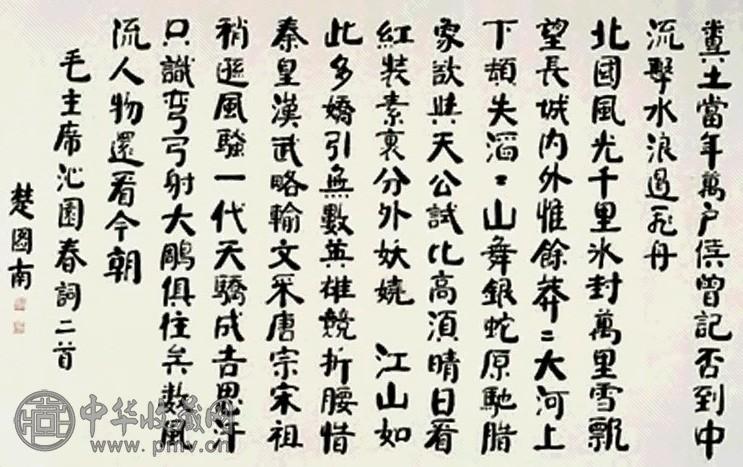 糞土當年萬户侯曾記否到中
流擊水浪遏飛舟
北國風光千里冰封萬里雪飄
望長城内外惟餘莽〻大河上
下頓失滔〻山舞銀蛇原馳腊
象欲與天公試比高須晴日看
紅裝素裹分外妖嬈 江山如
此多嬌引無數英雄競折腰惜
秦皇漢武略輸文采唐宗宋祖
稍遜風騷一代天驕成吉思汗
只識彎弓射大鵰俱往矣數風
流人物還看今朝
毛主席沁園春詞二首
楚圖南
中华收藏网
www.pmv.cn